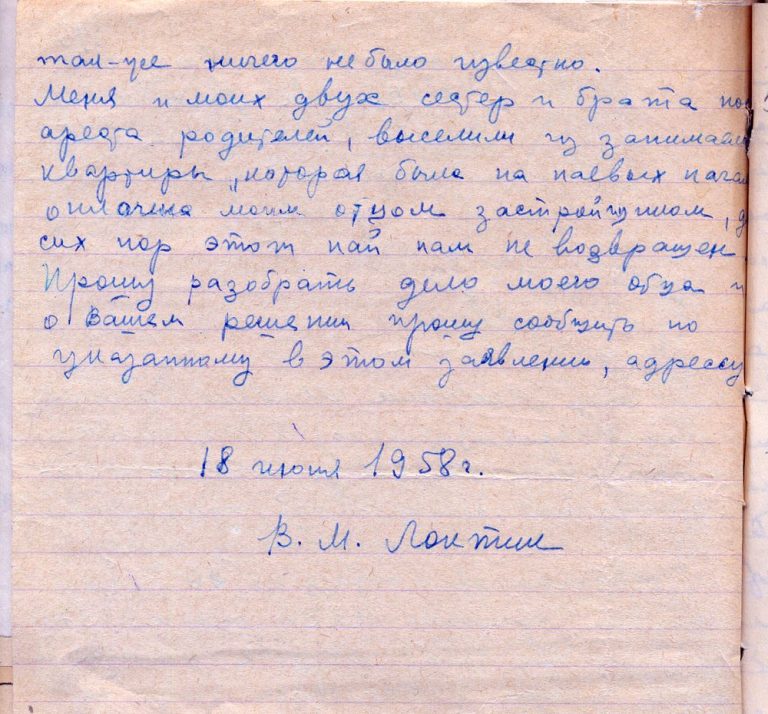 так-же ничего не было известно.
Меня и моих двух сестер и брата пос
ареста родителей, выселили из занимаем
квартиры, которая была на паевых начал
оплачена моим отцом застройщиком, д
сих пор этот пай нам не возвращен.
Прошу разобрать дело моего отца и
о Вашем решении прошу сообщить по
указанному в этом заявлении, адрессу
18 июня 1958 г.
В. М. Локтин